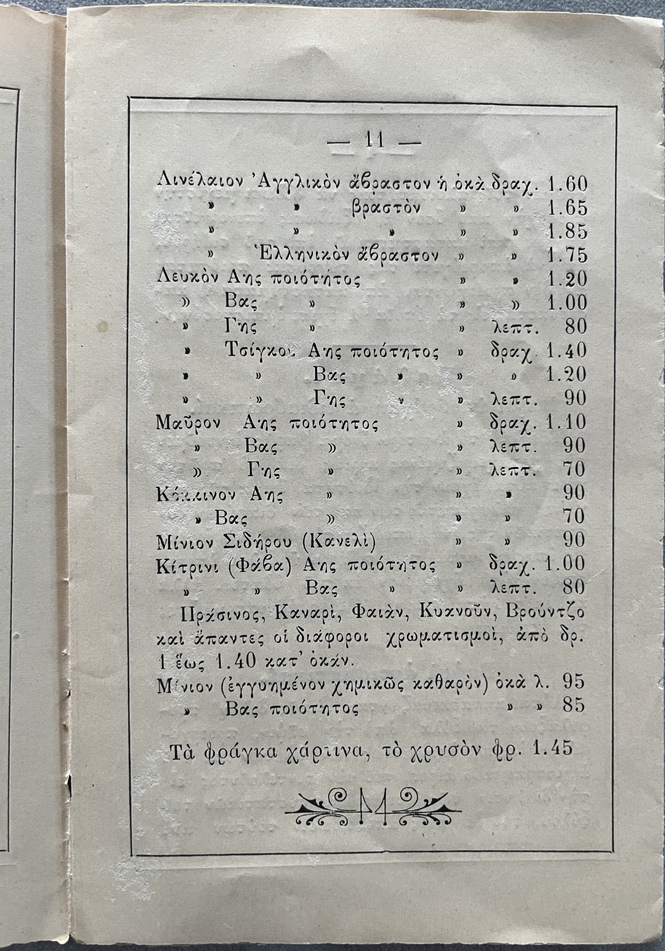 — 11 —
Λινέλαιον Ἀγγλικὸν ἄβραστον ἡ ὀκὰ δραχ. 1.60
» » βραστὸν » » 1.65
» » » » » 1.85
» Ἑλληνικὸν ἄβραστον » » 1.75
Λευκὸν Αης ποιότητος » » 1.20
» Βας » » » 1.00
» Γης » » λεπτ. 80
» Τσίγκου Αης ποιότητος » δραχ 1.40
» » Βας » » » 1.20
» » Γης » » λεπτ. 90
Μαῦρον Αης ποιότητος » δραχ. 1.10
» Βας » » λεπτ. 90
» Γης » » λεπτ. 70
Κόκκινον Αης » » » 90
» Βας » » » 70
Μίνιον Σιδήρου (Κανελὶ) » » 90
Κίτρινι (Φάβα) Αης ποιότητος » δραχ. 1.00
» » Βας » » λεπτ. 80
Πράσινος, Καναρὶ, Φαιὰν, Κυανοῦν, Βρούντζο
καὶ ἅπαντες οἱ διάφοροι χρωματισμοὶ, ἀπὸ δρ.
1 ἕως 1.40 κατ' ὀκάν.
Μίνιον (ἐγγυημένον χημικῶς καθαρὸν) ὀκὰ λ. 95
» Βας ποιότητος » » 85
Τὰ φράγκα χάρτινα, τὸ χρυσὸν φρ. 1.45